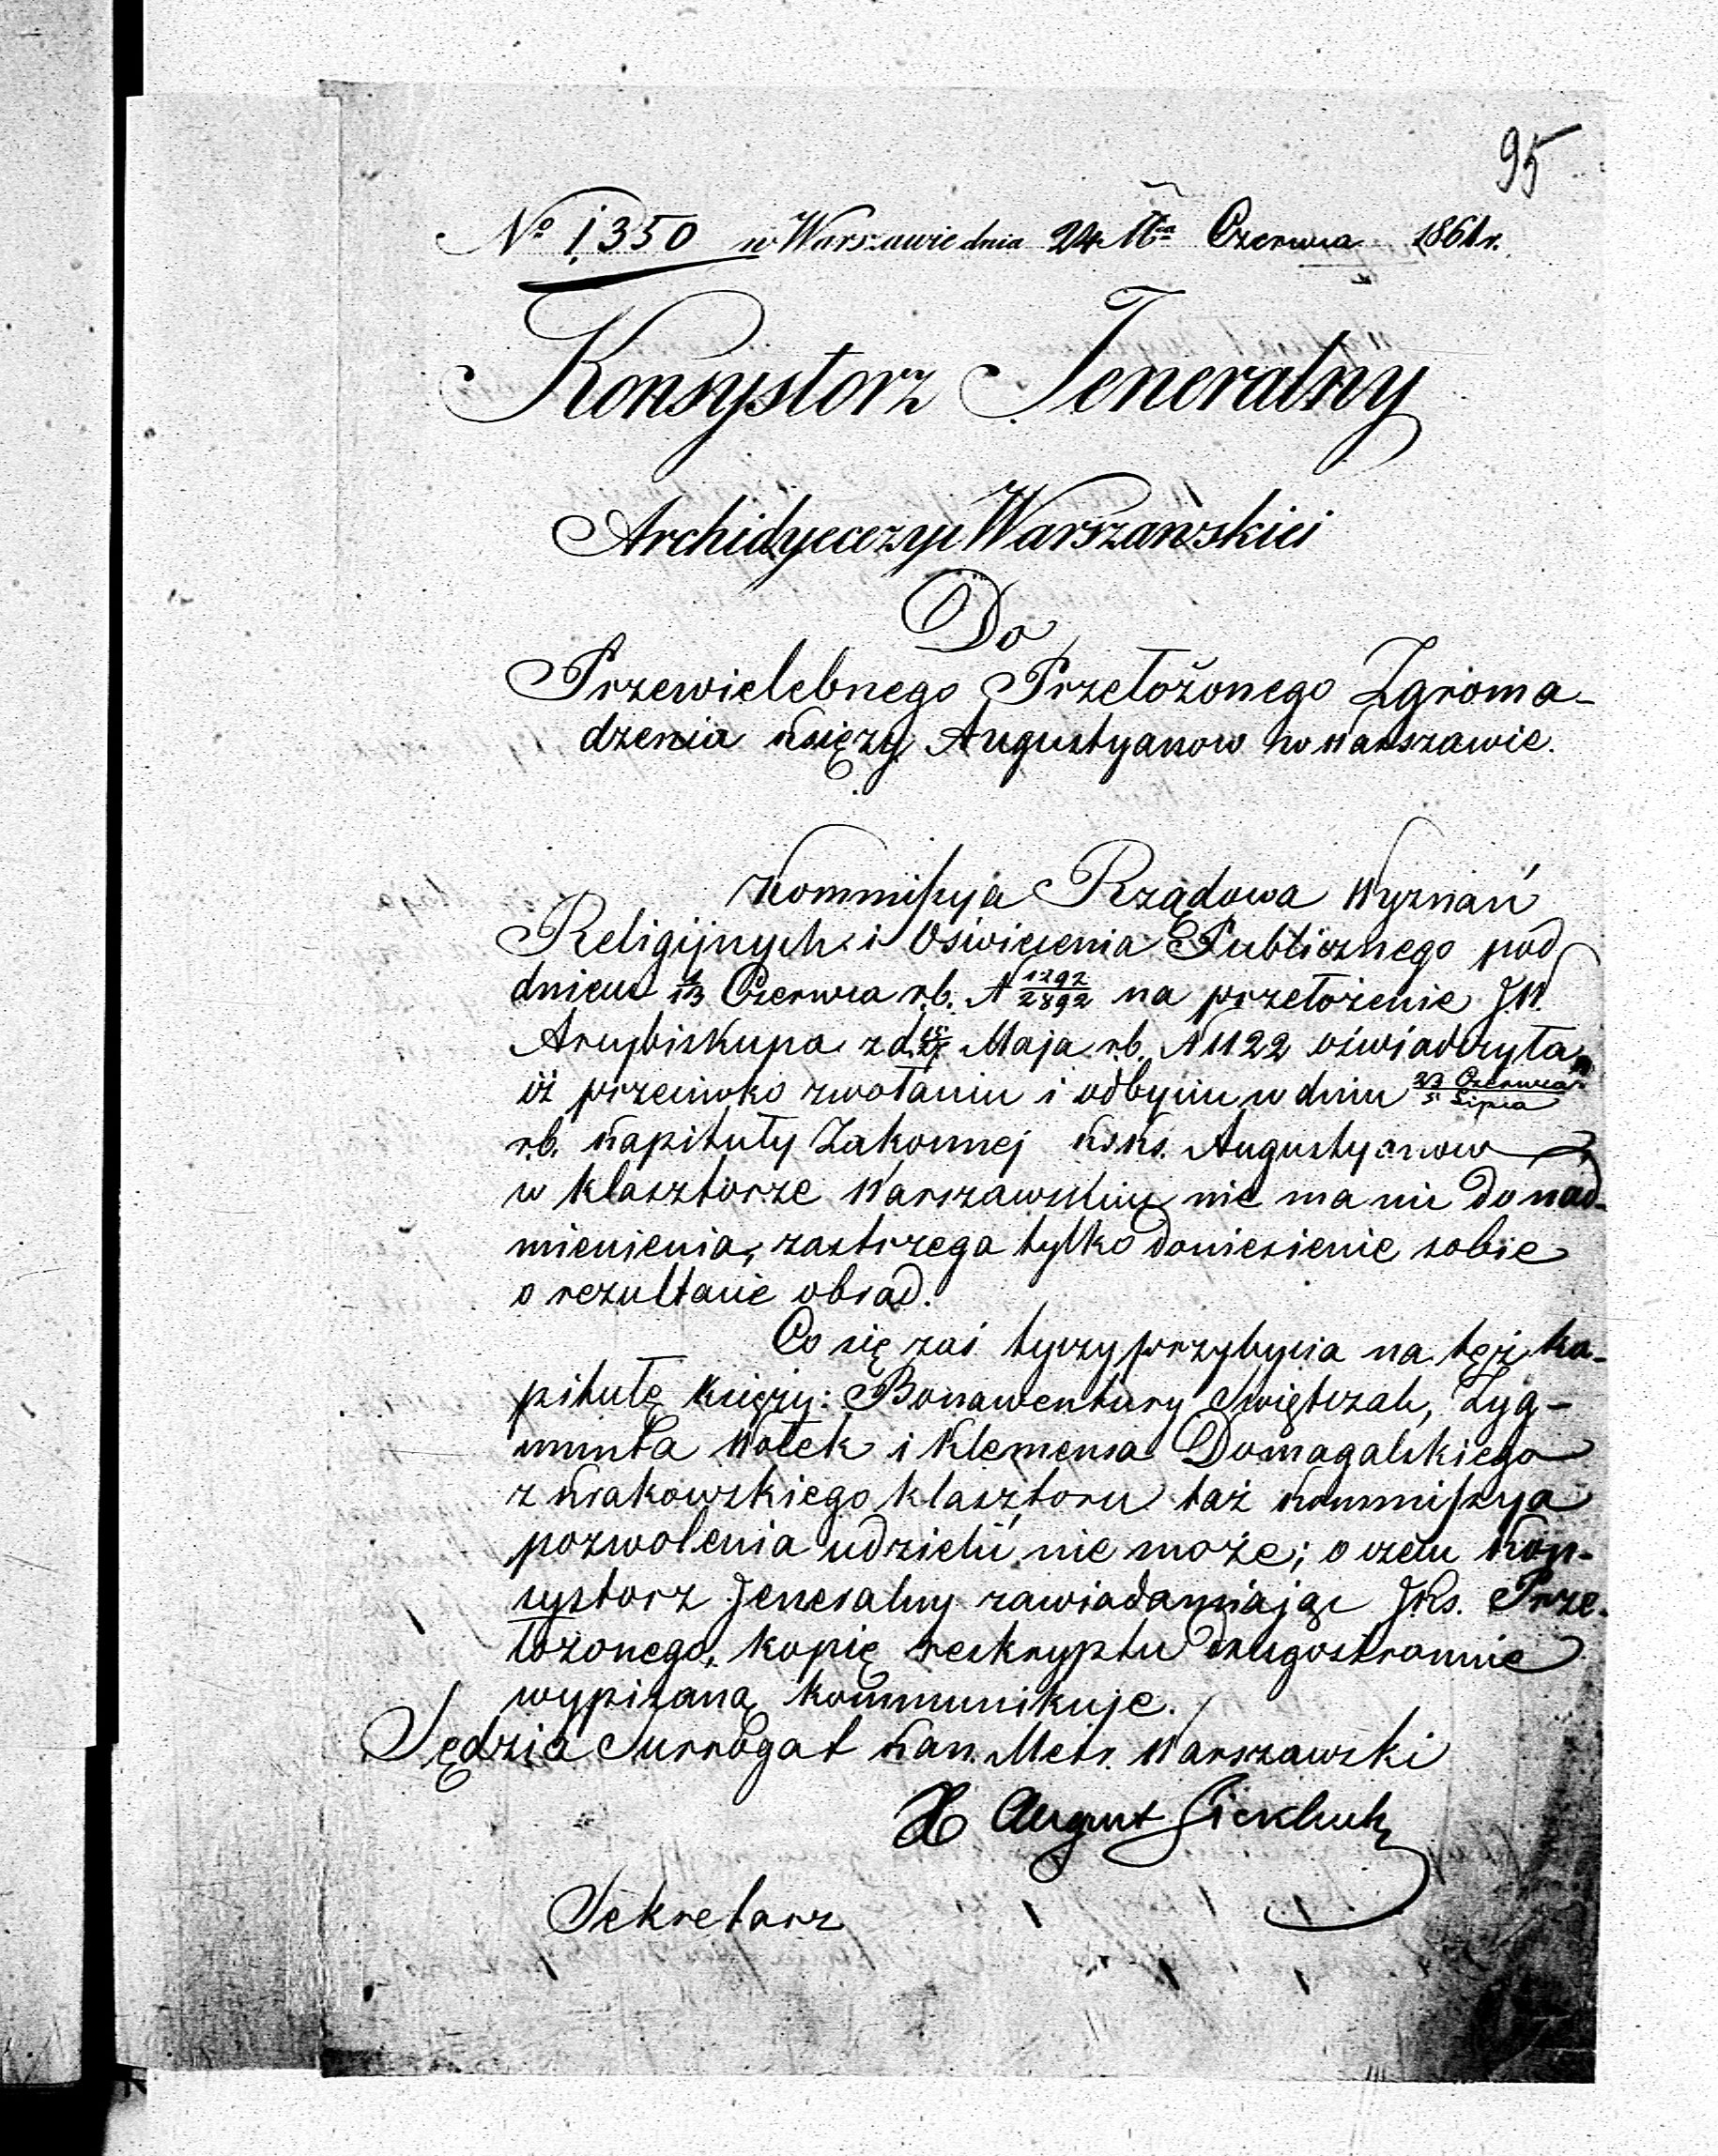 95
№ 1350 w Warszawie dnia 24 Mca Czerwca 1861 r.
Konsystorz Jeneralny
Archidyecezyi Warszawskiei
Do
Przewielebnego Przełożonego Zgroma-
dzenia Księży Augustyanow w Warszawie.
Kommissyja Rządowa Wyznań
Religijnych i Oświecenia Publicznego pod
dniem 1/13 Czerwca r.b. N 1292/2892 na przełożenie J.W.
Arcybiskupa z d. Maja r.b. N 1122 oświadczyła,
iż przeciwko zwołaniu i odbyciu w dniu 23 Czerwca/5 Lipca
r.b. Kapituły Zakonnej Ksks. Augustyanow
w klasztorze Warszawskim nie ma nic do nad-
mienienia, zastrzega tylko doniesienie sobie
o rezultacie obrad.
Co się zaś tyczy przybycia na tęż ka-
pitułę księży: Bonawentury Swiętczah, Zyg-
munta Wołek i Klemensa Domagalskiego
z Krakowskiego klasztoru taż Kommissya
pozwolenia udzielić nie może; o czem Kon-
systorz Jeneralny zawiadamiając JKs. Prze-
łożonego, kopię reskryptu drugostronnie
wypisaną kommunikuje.
Sędzia Surrogat Kan. Metr. Warszawski
X August
Sekretarz